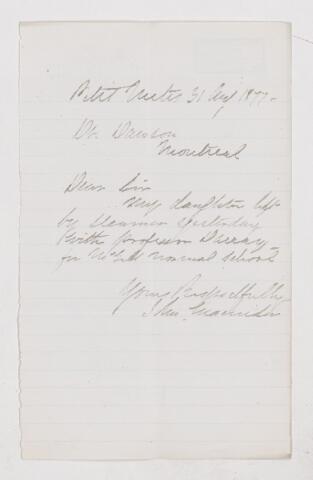 Petit Metis 31 Aug 1877.
Dr. Dawson
Montreal
Dear Sir
My daughter left
by steamer yesterday
with Professor
for McGill Normal School
Yours Respectfully
John